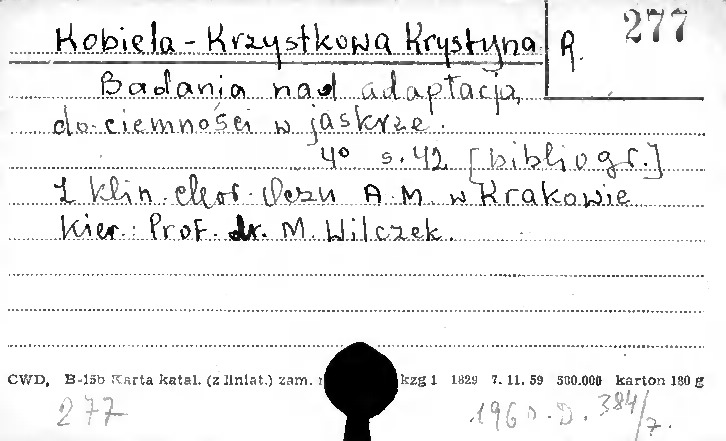 Kobiela-Krzystkowa Krystyna R. 277
Badania nad adaptacją
do ciemności w jaskrze.
4° s. 42 [bibliogr.]
Z klin. chor. Oczu A. M. w Krakowie
Kier: Prof. dr. M. Wilczek.
CWD, B-15b Karta katal. (z liniat.) zam. kzg 1 1829 7. 11. 59 500.000 karton 180 g
277 1960. D. 384/7.